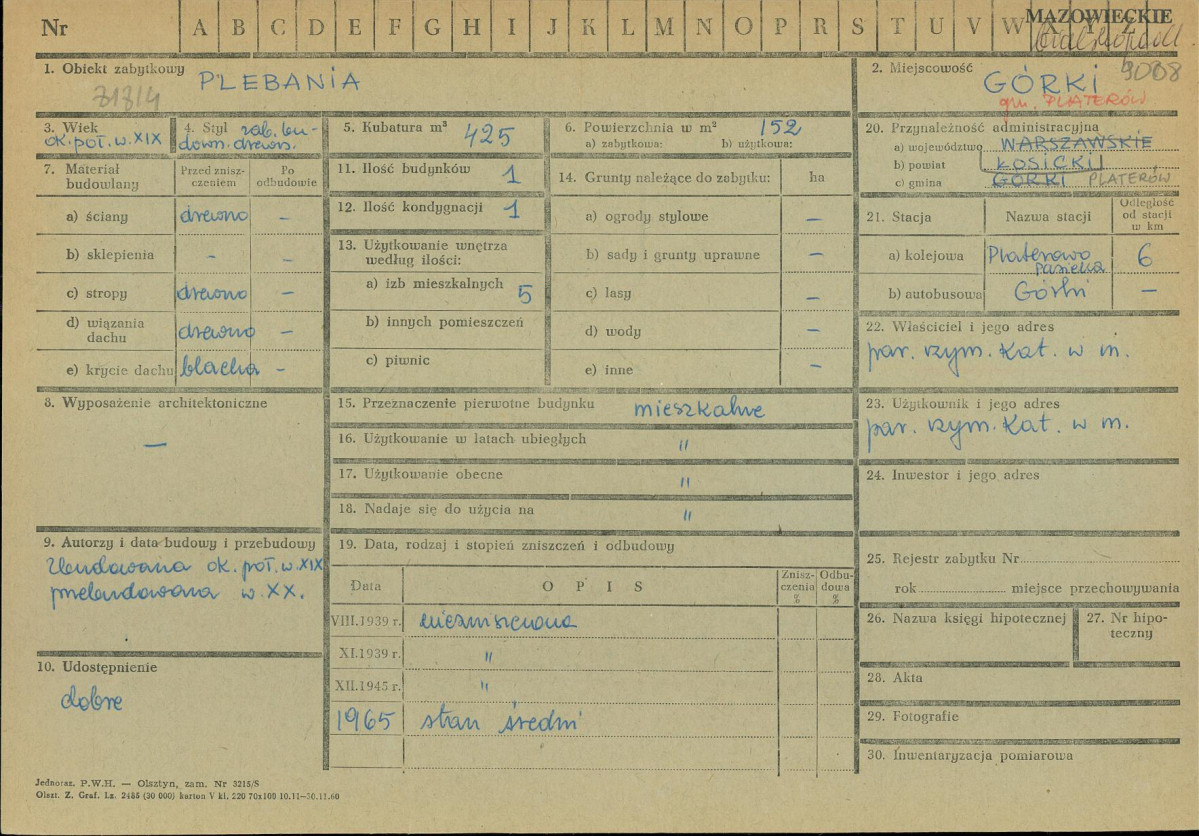 Nr A B C D E F G H I J K L M N O P R S T U V W X Y Z
MAZOWIECKIE
1. Obiekt zabytkowy PLEBANIA
2. Miejscowość GÓRKI 9008
gm. PLATERÓW
3. Wiek
ok. poł. w. XIX
4. Styl zab. bu-
down. drewn.
5. Kubatura m³ 425
6. Powierzchnia w m² 152
a) zabytkowa: b) użytkowa:
7. Materiał budowlany
Przed znisz-
czeniem
Po
odbudowie
a) ściany drewno –
b) sklepienia – –
c) stropy drewno –
d) wiązania
dachu drewno –
e) krycie dachu blacha –
8. Wyposażenie architektoniczne
—
9. Autorzy i data budowy i przebudowy
Zbudowana ok. poł. w. XIX
przebudowana w. XX.
10. Udostępnienie
dobre
11. Ilość budynków 1
12. Ilość kondygnacji 1
13. Użytkowanie wnętrza
według ilości:
a) izb mieszkalnych 5
b) innych pomieszczeń
c) piwnic
14. Grunty należące do zabytku: ha
a) ogrody stylowe –
b) sady i grunty uprawne –
c) lasy –
d) wody –
e) inne –
15. Przeznaczenie pierwotne budynku mieszkalne
16. Użytkowanie w latach ubiegłych "
17. Użytkowanie obecne "
18. Nadaje się do użycia na "
19. Data, rodzaj i stopień zniszczeń i odbudowy
Data OPIS
Znisz-
czenia
%
Odbu-
dowa
%
VIII.1939 r. niezniszczona
XI.1939 r. "
XII.1945 r. "
1965 stan średni
20. Przynależność administracyjna
a) województwo WARSZAWSKIE
b) powiat ŁOSICKI
c) gmina GÓRKI PLATERÓW
21. Stacja Nazwa stacji
Odległość
od stacji
w km
a) kolejowa Platerowo
Pasieka 6
b) autobusowa Górki –
22. Właściciel i jego adres
par. rzym. Kat. w m.
23. Użytkownik i jego adres
par. rzym. Kat. w m.
24. Inwestor i jego adres
25. Rejestr zabytku Nr
rok miejsce przechowywania
26. Nazwa księgi hipotecznej
27. Nr hipo-
teczny
28. Akta
29. Fotografie
30. Inwentaryzacja pomiarowa
Jednoraz. P.W.H. — Olsztyn, zam. Nr 3215/S
Olszt. Z. Graf. Lz. 2485 (30 000) karton V kl. 220 70x100 10.11—30.11.60